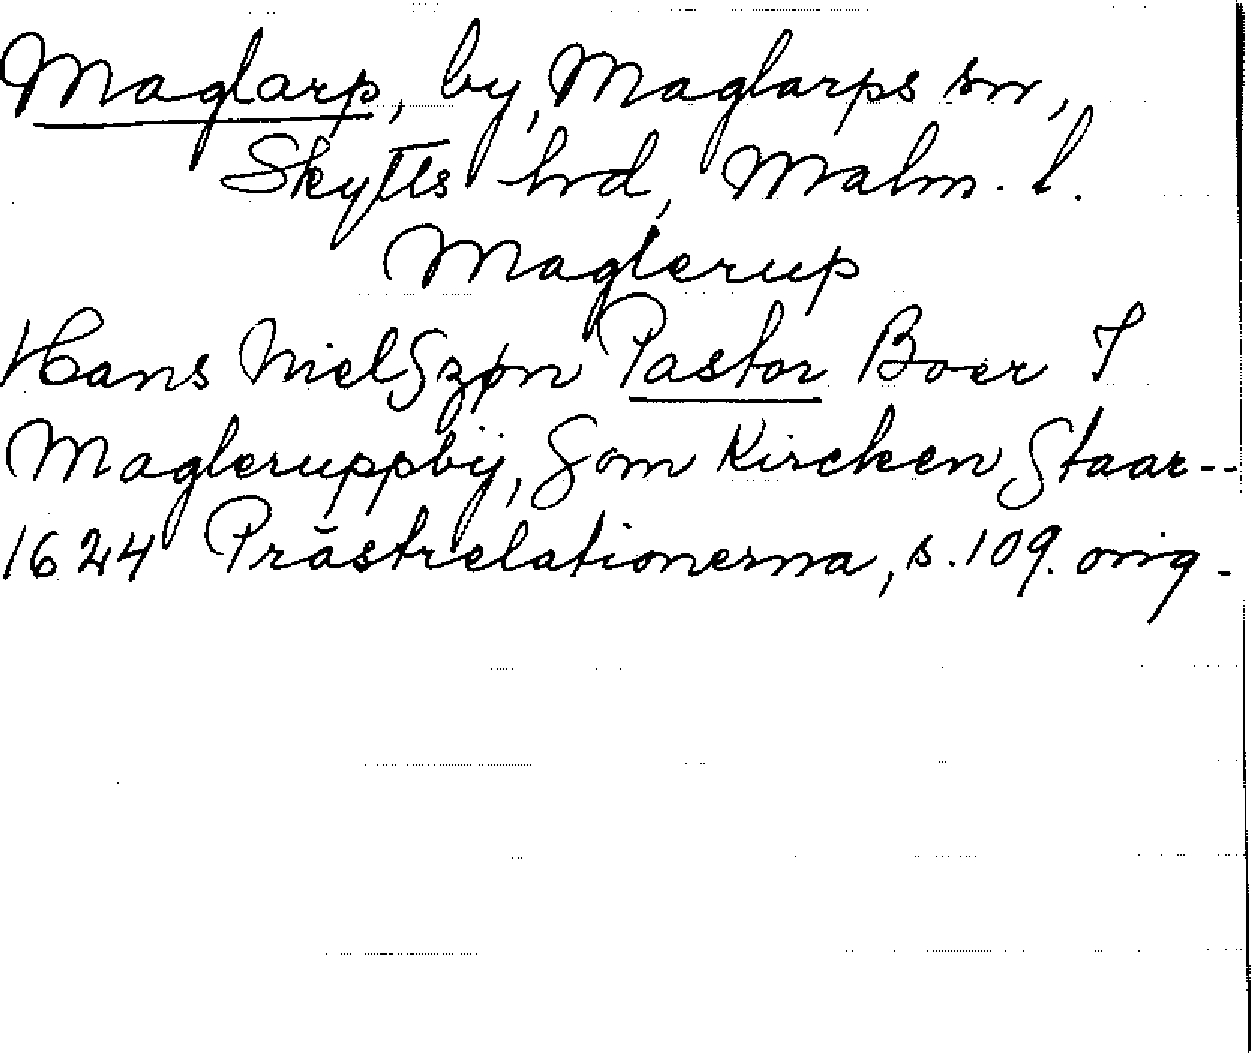 Maglarp, by, Maglarps sn,
Skytts hrd, Malm. l.
Maglerup
Hans Nielſzøn Pastor Boer I
Magleruppbÿ, Som Kircken Staar--
1624 Prästrelationerna, s. 109. orig.